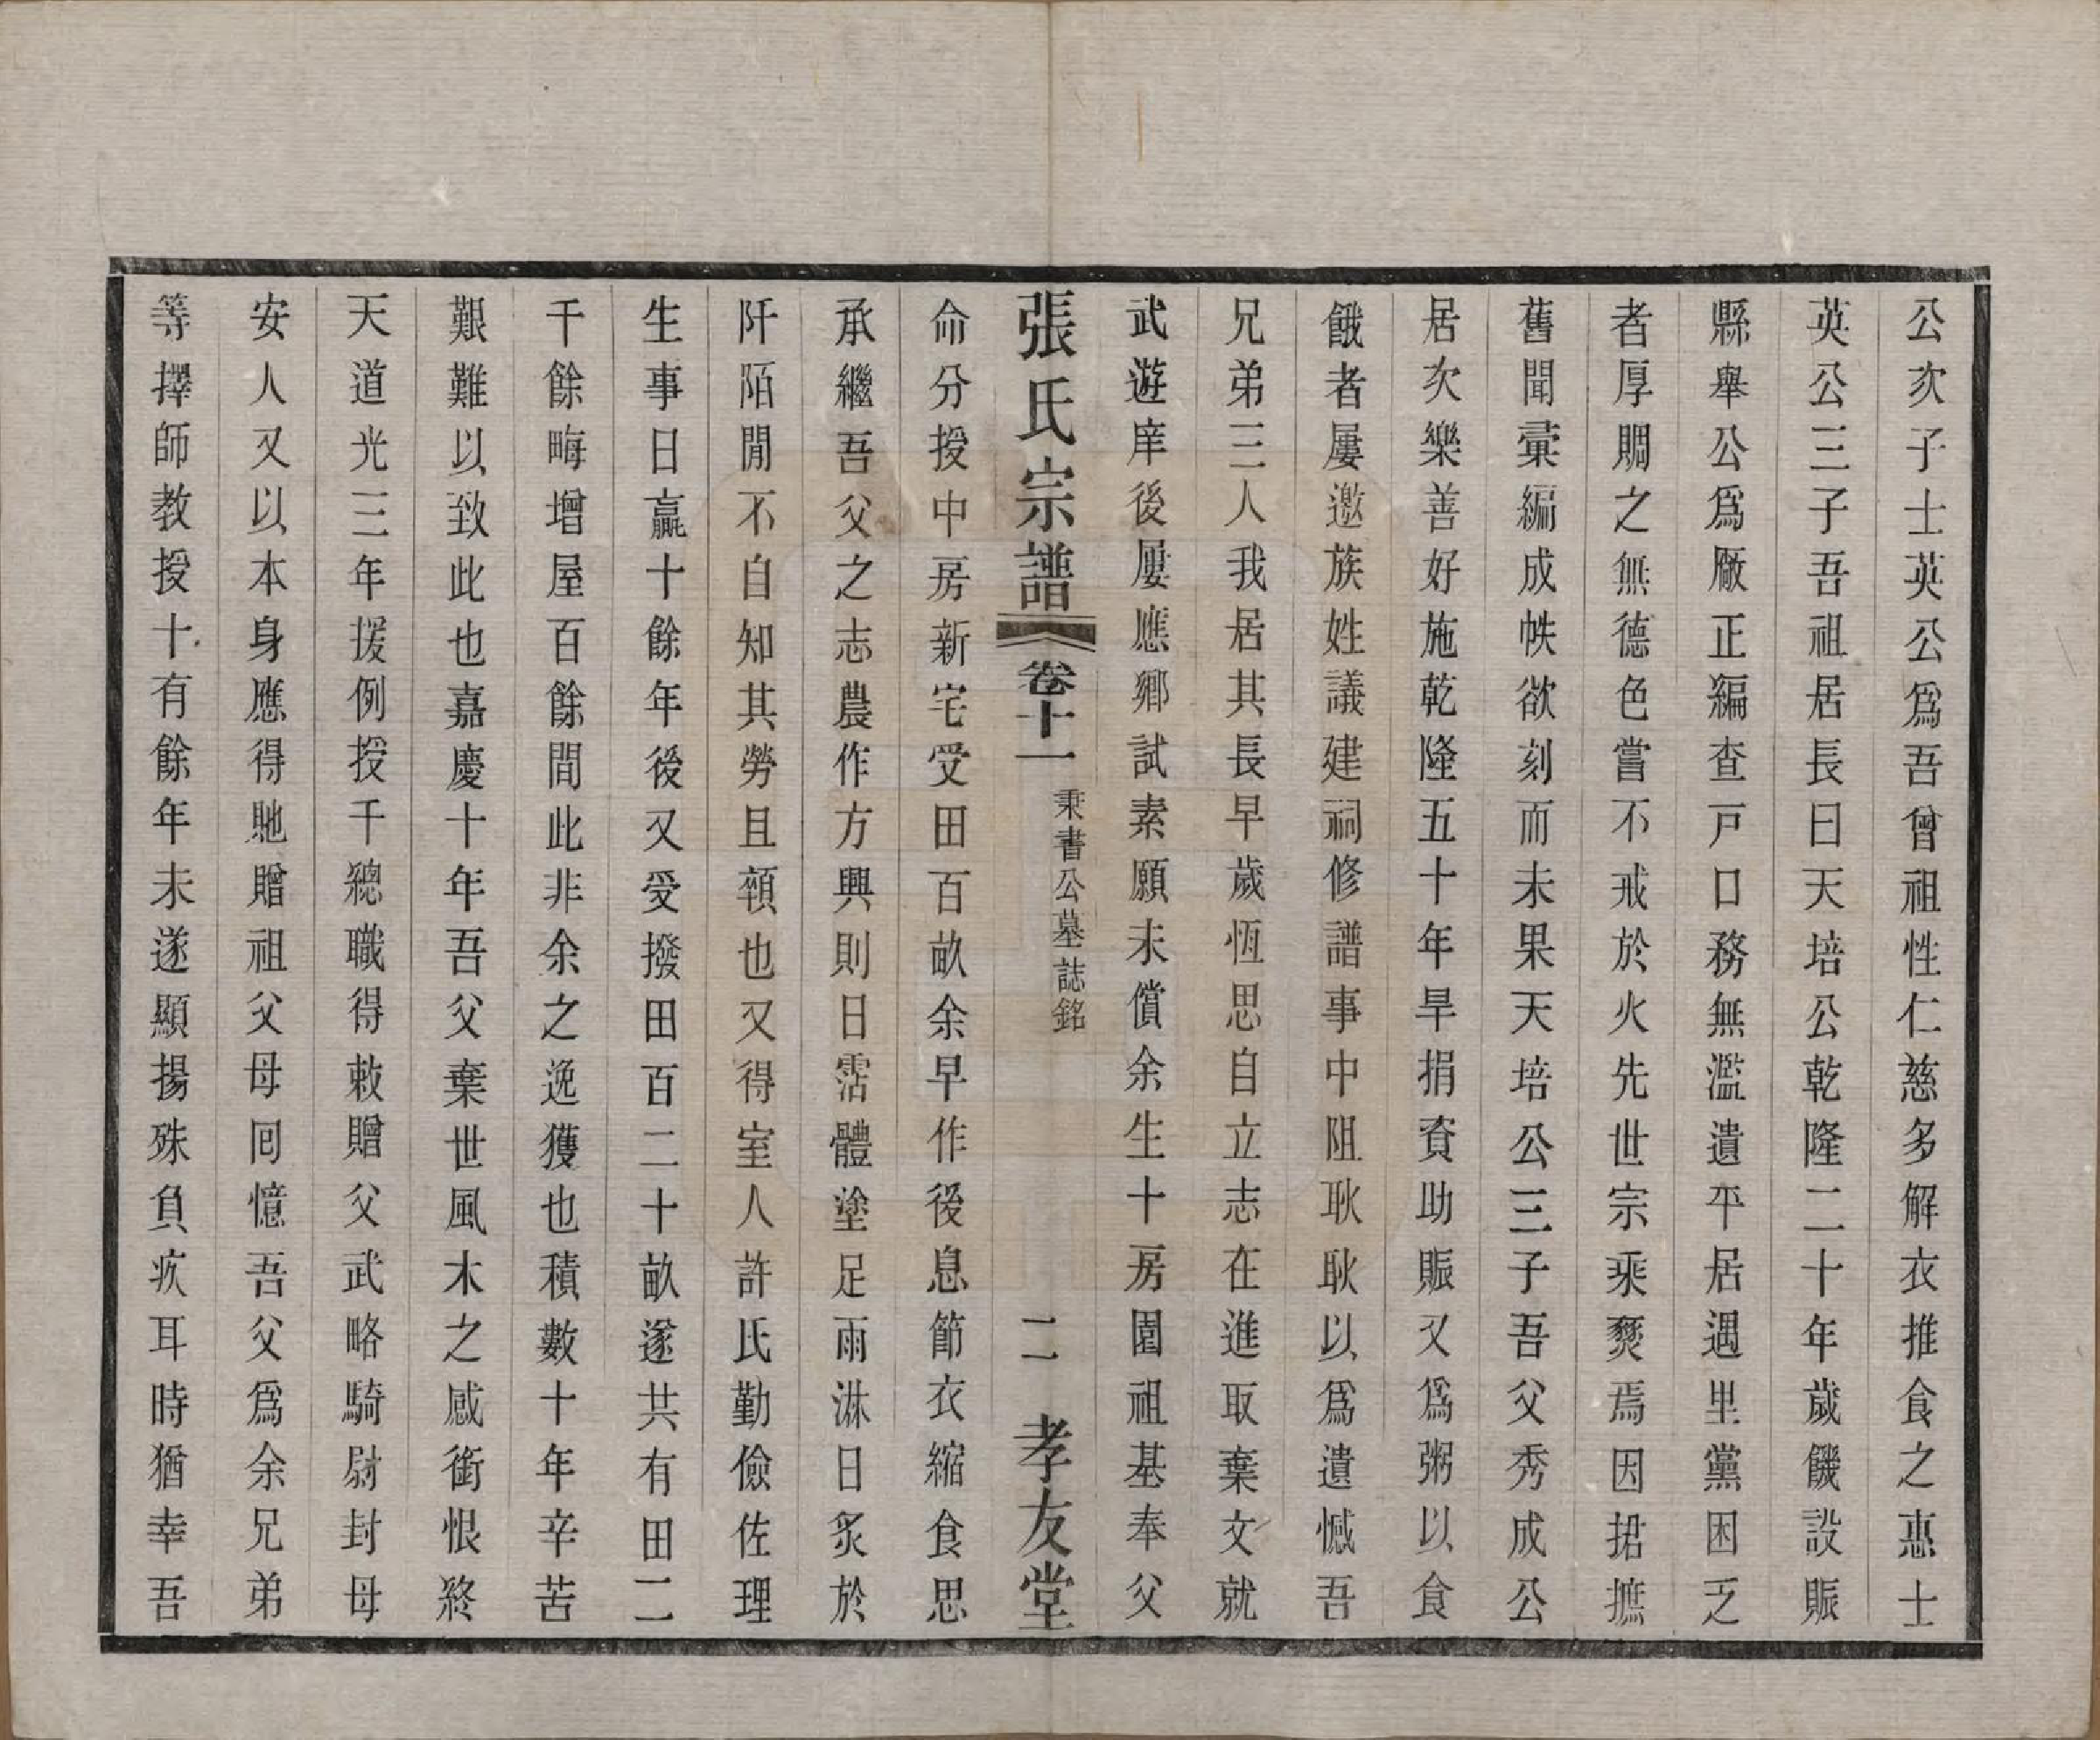 公次子士英公爲吾曾祖性仁慈多解衣推食之惠士
英公三子吾祖居長曰天培公乾隆二十年歲饑設賑
縣舉公爲厰正編查戸口務無濫遺平居遇里黨困乏
者厚賙之無德色嘗不戒於火先世宗乘燹焉因捃摭
舊聞彙編成帙欲刻而未果天培公三子吾父秀成公
居次樂善好施乾隆五十年旱捐資助賑又爲粥以食
餓者屢邀族姓議建祠修譜事中阻耿耿以爲遺憾吾
兄弟三人我居其長早歲恆思自立志在進取棄文就
武遊庠後屢應鄉試素願未償余生十房園祖基奉父
張氏宗譜 卷十一 秉書公墓誌銘 二 孝友堂
命分授中房新宅受田百畝余早作後息節衣縮食思
承繼吾父之志農作方興則日霑體塗足雨淋日炙於
阡陌閒不自知其勞且顇也又得室人許氏勤儉佐理
生事日贏十餘年後又受撥田百二十畝遂共有田二
千餘畮增屋百餘間此非余之逸獲也積數十年辛苦
艱難以致此也嘉慶十年吾父棄世風木之感銜恨終
天道光三年援例授千總職得敕贈父武略騎尉封母
安人又以本身應得貤贈祖父母囘憶吾父爲余兄弟
等擇師教授十有餘年未遂顯揚殊負疚耳時猶幸吾